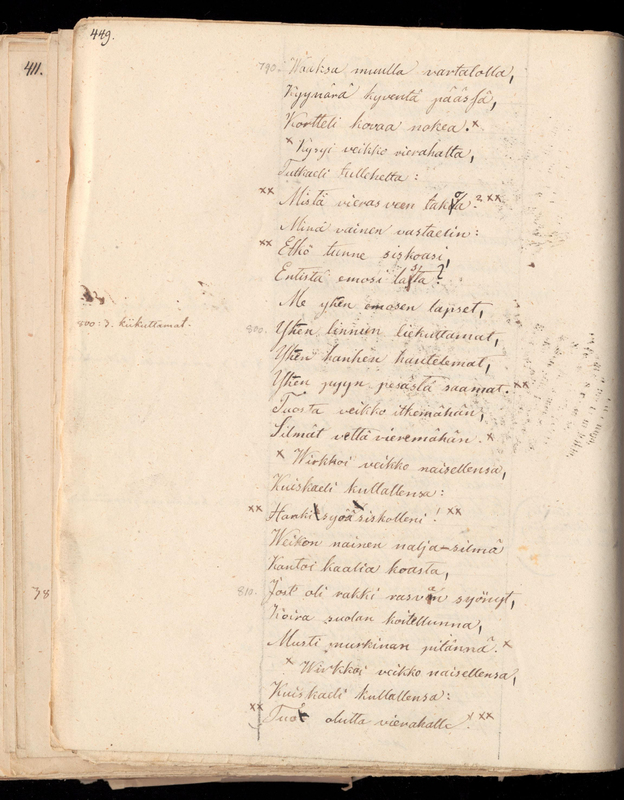 449.
411.
790. Waaksa muulla vartalolla,
Kyynärä kyventä päässä,
Kortteli kovaa nokea.×
× Kysyi veikko vierahalta,
Tutkaeli tullehelta:
×× Mistä vieras veen takoa? ××
Minä vainen vastaelin:
×× Etkö tunne siskoasi,
Entistä emosi lasta?
Me yhen emosen lapset,
800: 3. kiikuttamat.
800. Yhen linnun liekuttamat,
Yhen hanhen hautelemat,
Yhen pyyn pesästä saamat. ××
Tuosta veikko itkemähän,
Silmät vettä vieremähän. ×
× Wirkkoi veikko naisellensa,
Kuiskaeli kullallensa:
×× Hanki syöä siskolleni! ××
Weikon nainen nalja-silmä
Kantoi kaalia koasta,
38
810. Jost' oli rakki rasvan syönyt,
Koira suolan koitellunna,
Musti murkinan pitännä. ×
× Wirkkoi veikko naisellensa,
Kuiskaeli kullallensa:
×× Tuo olutta vierahalle! ××